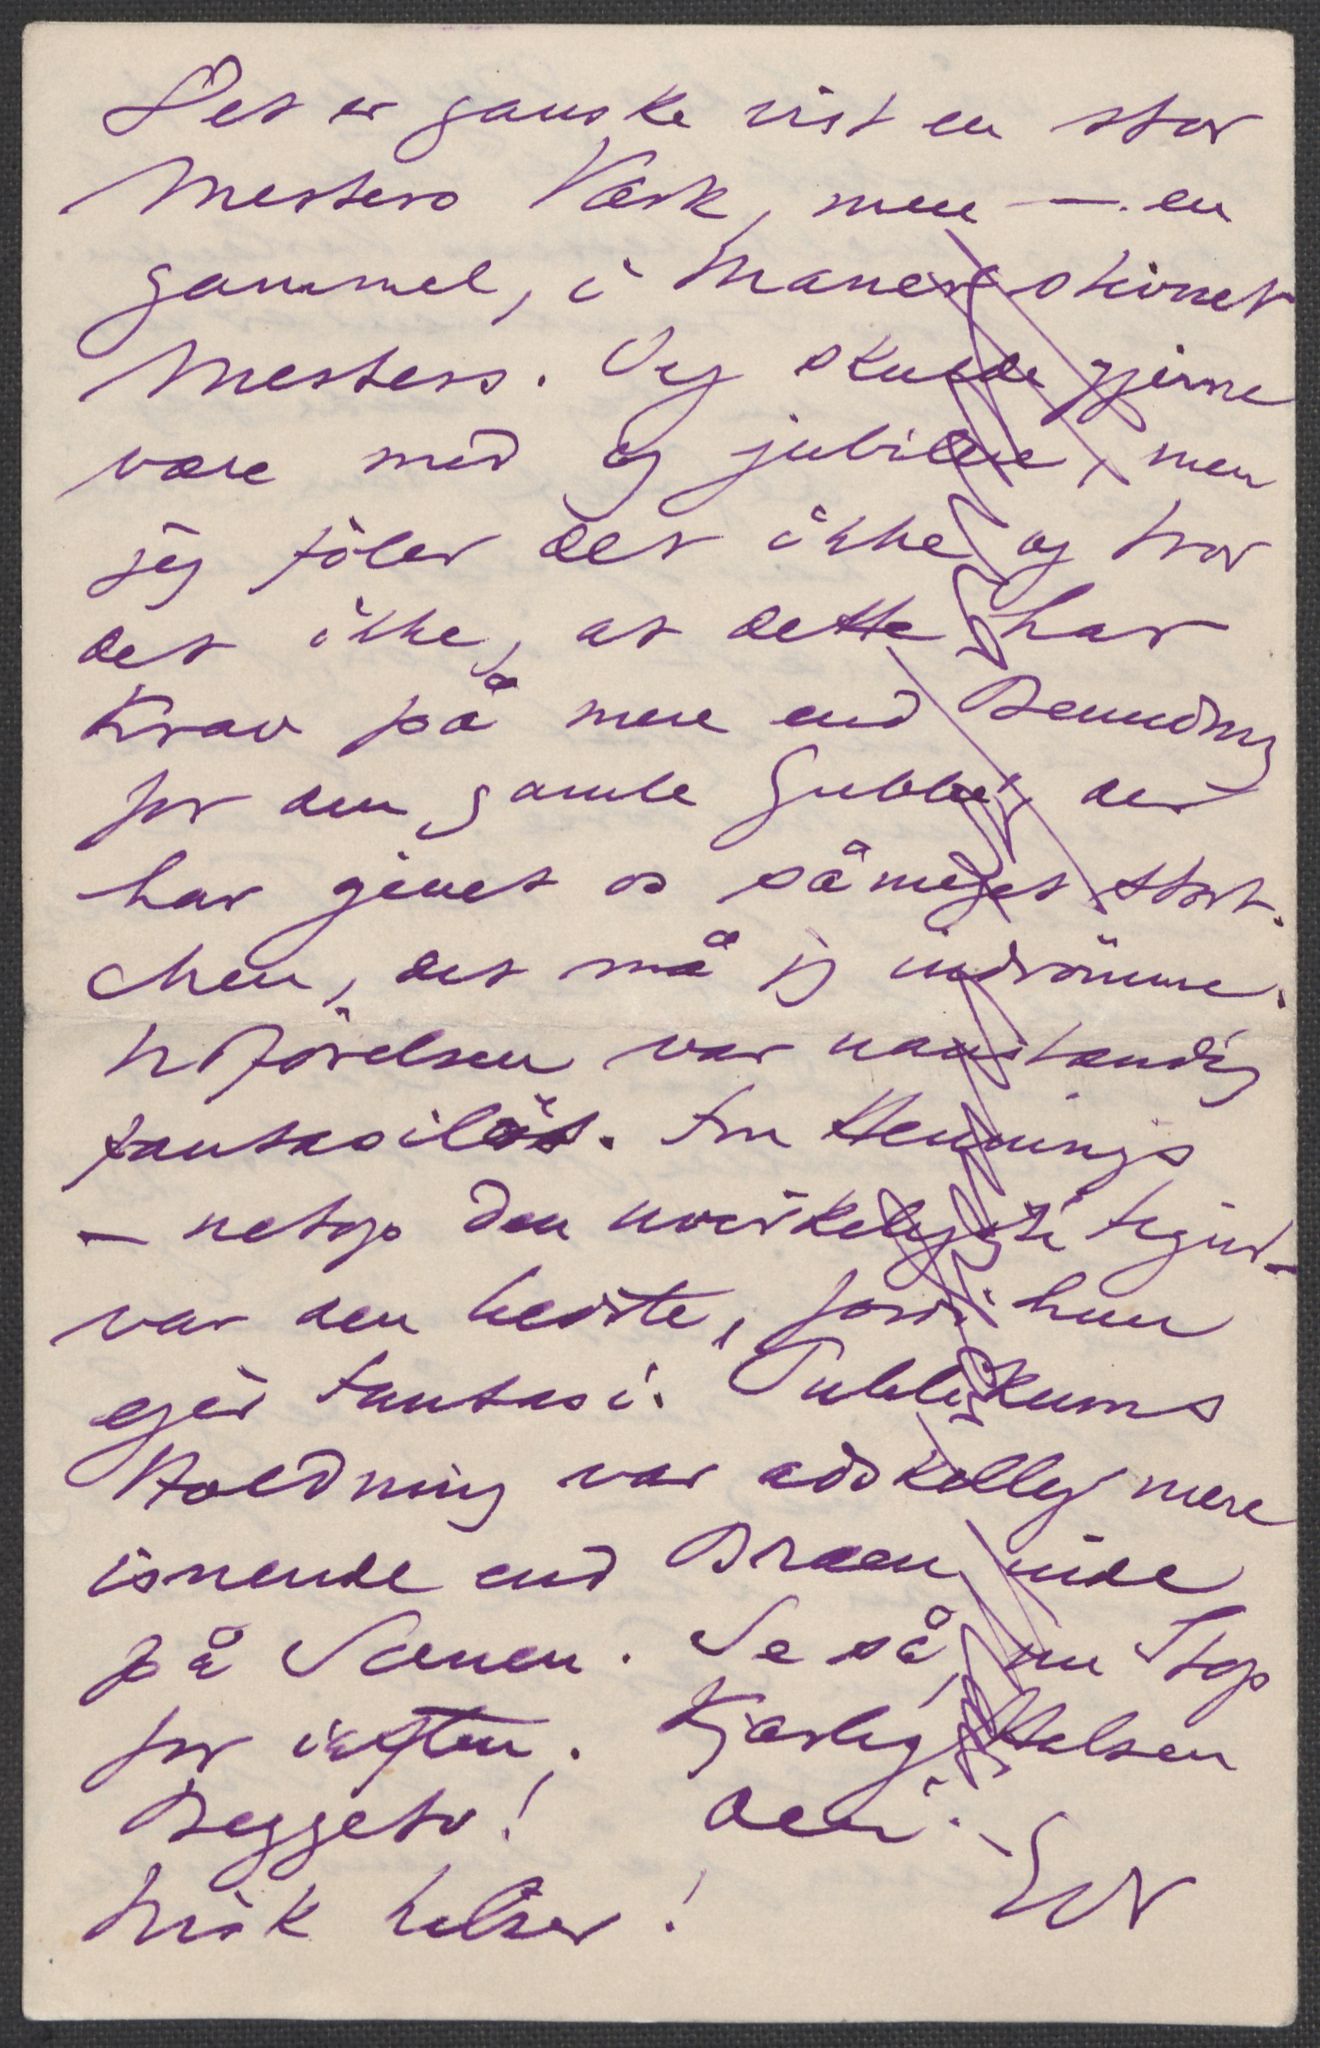 Det er ganske vist en stor
Mesters Værk, men — en
gammel, i Maner stivnet
Mesters. Jeg skulde gjerne
være med og juble, men
jeg föler det ikke og tror
det ikke, at dette har
Krav på mere end Beundring
for den gamle Gubbe, der
har givet os såmeget stort.
Men, det må jeg indrömme.
Udförelsen var uanstændig
fantasilös. Fru Hennings
— netop den uvirkeligste Figur —
var den bedste, fordi hun
ejer Fantasi. Publikums
Holdning var adskillig mere
isnende end Bræen inde
på Scenen. Se så, nu Stop
for iaften. Kjærlig Hilsen
Beggeto! Deres
Frisk hilser!